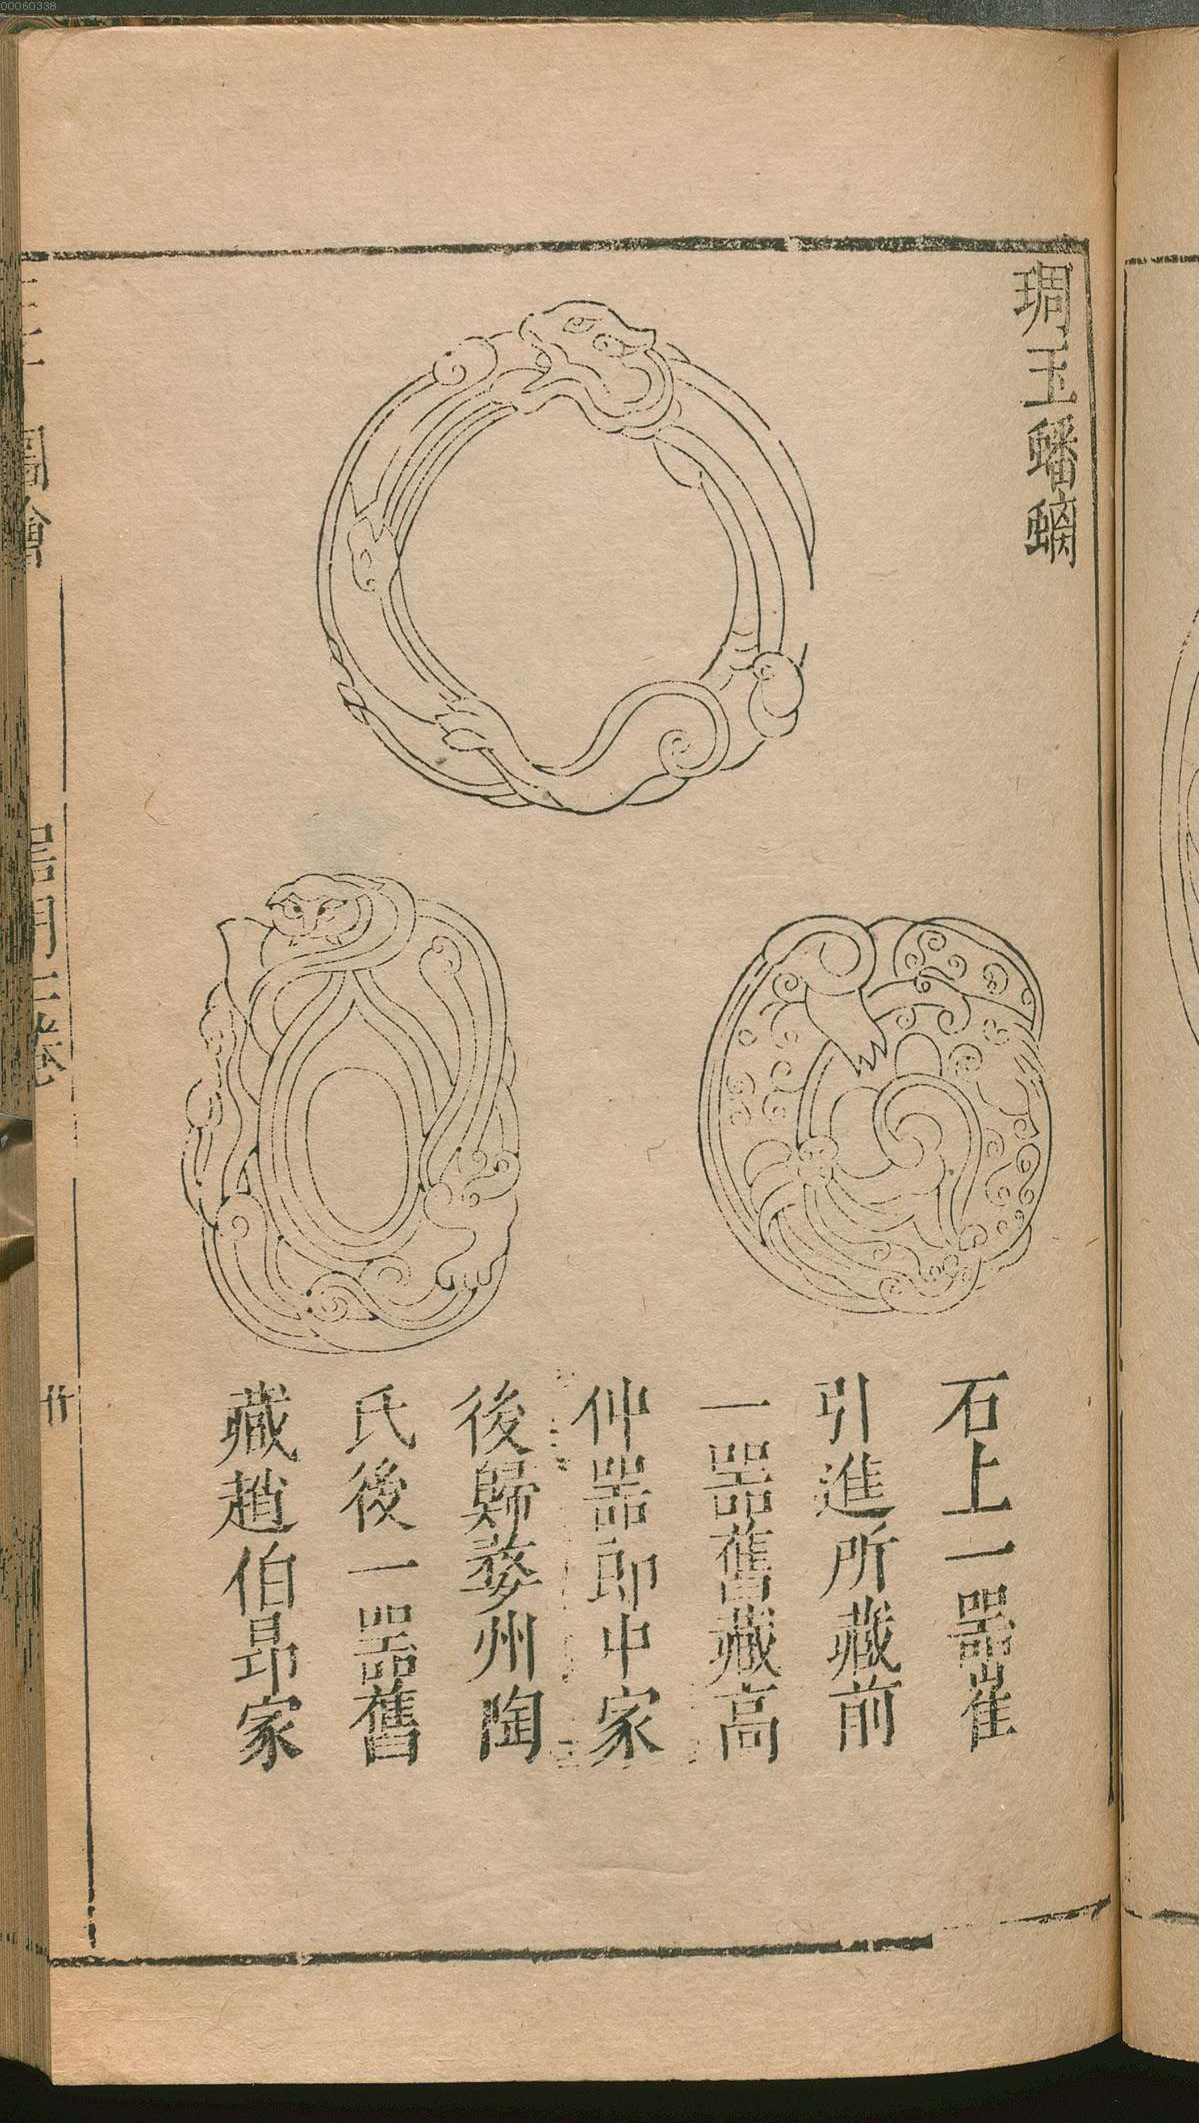 琱玉蟠螭
石上一器崔
引進所藏前
一器舊藏高
仲器即中家
後歸婺州陶
氏後一器舊
藏趙伯昻家
圖繪
器用二卷
00060338